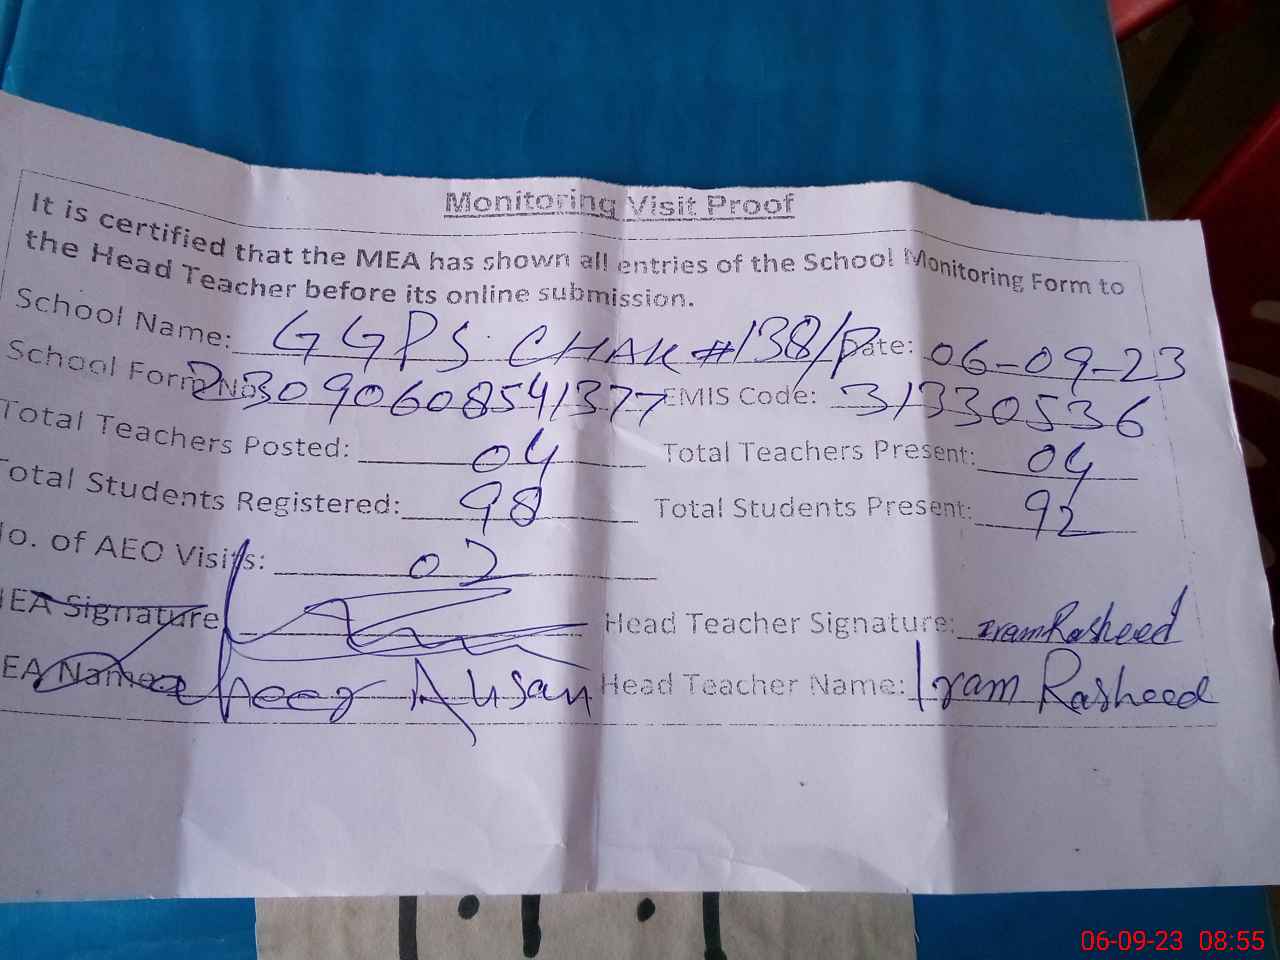 Monitoring Visit Proof
It is certified that the MEA has shown all entries of the School Monitoring Form to
the Head Teacher before its online submission.
School Name: GGPS CHAK #138/P Date: 06-09-23
School Form No: 23090608541377 EMIS Code: 31330536
Total Teachers Posted: 04 Total Teachers Present: 04
Total Students Registered: 98 Total Students Present: 92
No. of AEO Visits: 02
MEA Signature Head Teacher Signature: Iram Rasheed
MEA Name Ahsan Head Teacher Name: Iram Rasheed
06-09-23 08:55